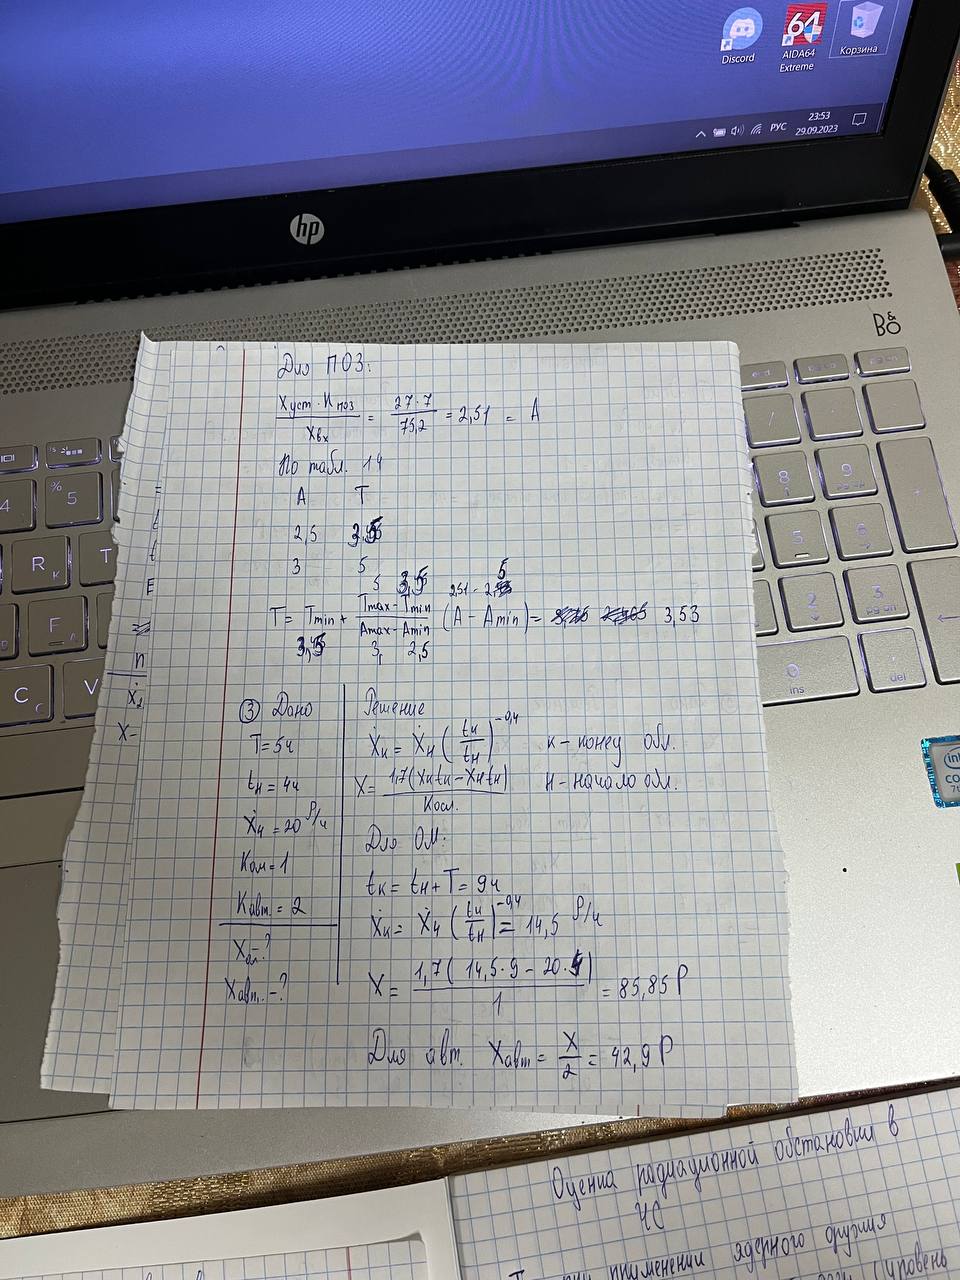 Discord
AIDA64
Extreme
64
Корзина
РУС
23:53
29.09.2023
hp
B&O
Для ПОЗ:
Xуст · Kпоз / Xвх = 27 · 7 / 75,2 = 2,51 = A
По табл. 14
A T
2,5 3,5
3 5
5 3,5 2,51 - 2,5
T = Tmin + Tmax - Tmin / Amax - Amin (A - Amin) = 3,53
3,5 3, 2,5
③ Дано
T = 5ч
tн = 4ч
Ẋ4 = 20 Р/ч
Kом = 1
Kавт. = 2
Xом. - ?
Xавт. - ?
Решение
Ẋк = Ẋн (tк / tн)^-0,4 к - конец обл.
X = 1,7(Ẋкtк - Ẋнtн) / Kосл. н - начало обл.
Для ОМ:
tк = tн + T = 9ч
Ẋк = Ẋ4 (tк / tн)^-0,4 = 14,5 Р/ч
X = 1,7( 14,5 · 9 - 20 · 4) / 1 = 85,85 Р
Для авт. Xавт = X / 2 = 42,9 Р
Оценка радиационной обстановки в
ЧС
при применении ядерного оружия
(уровень
% 5
4
R к
T
F
C с
V
8
9 pg up
5
6
2
3 pg dn
0 ins
. del
/
+